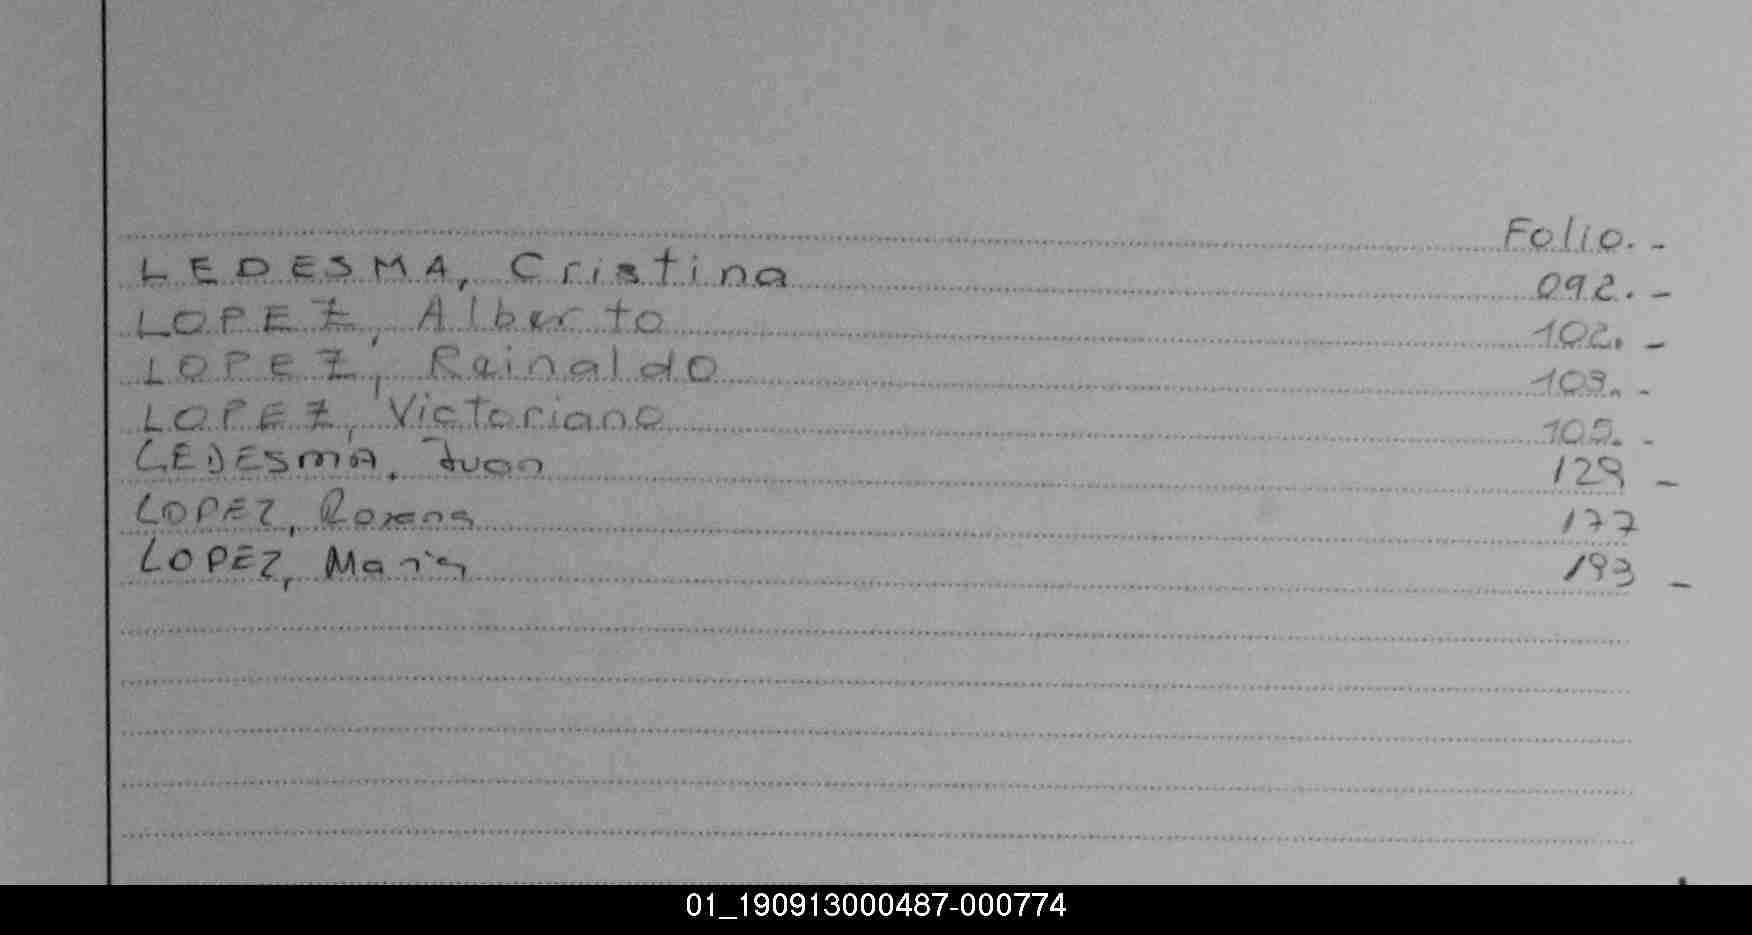 Folio. -
LEDESMA, Cristina 092. -
LOPEZ, Alberto 102. -
LOPEZ, Reinaldo 103. -
LOPEZ, Victoriano 105. -
LEDESMA, Juan 129 -
LOPEZ, Roxana 177
LOPEZ, Maria 193 -
01_190913000487-000774